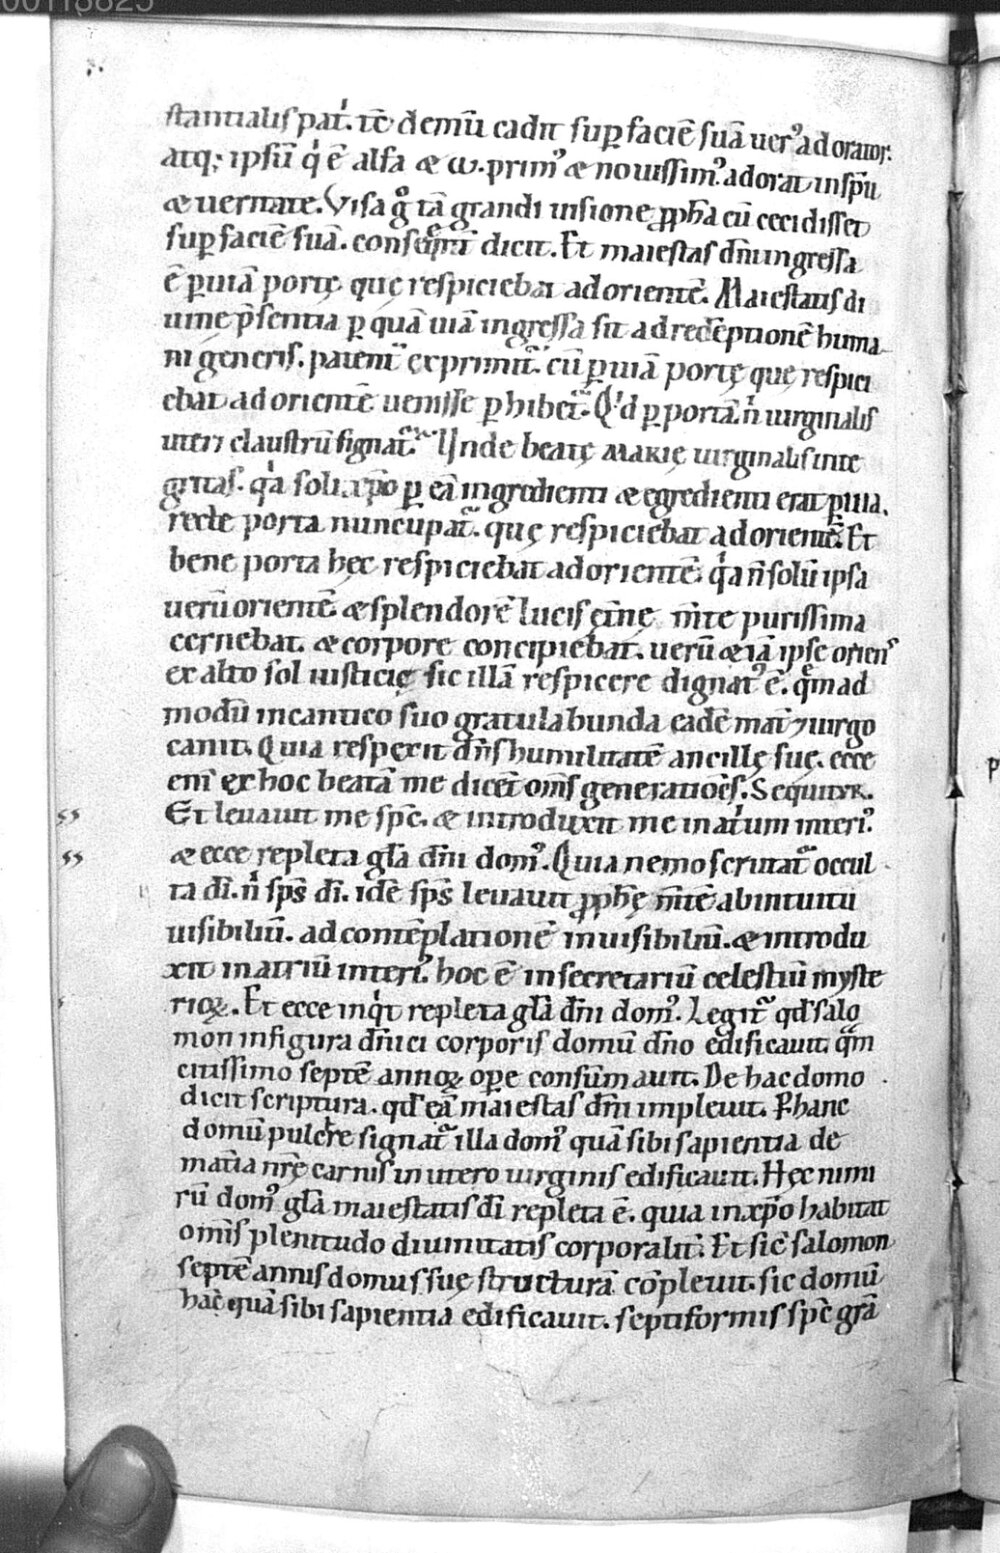 00118825
stantialis pat̍. tē demū cadit suꝑ faciē suā uer᾽ adorator.
atq; ipsū q̍ ē alfa & ω. prim᾽ & nouissim᾽. adorat in sp̄u
& ueritate. Visa g̊ tā grandi uisione ꝓph̄a cū cecidisset
suꝑ faciē suā. dicit. Et maiestas dn̄i ingressa
ē ꝑ uiā portę quę respiciebat ad orientē. Maiestatis di
uinę p̄sentia ꝑ quā uiā ingressa sit ad redēptionē huma
ni generis. patent᷑ exprimit᷑. cū ꝑ uiā portę quę respici
ebat ad orientē uenisse ꝑhibet᷑. Q̍d ꝑ portā. n̍ uirginalis
uteri claustrū signat᷑. Unde beatę MARIę uirginalis inte
gritas. q̍a soli xp̄o ꝑ eā ingredienti & egredienti erat ꝑuia.
recte porta nuncupat᷑. quę respiciebat ad orientē. Et
bene porta hęc respiciebat ad orientē. q̍a n̄ solū ipsa
uerū orientē & splendorē lucis ęt̄nę m̄te purissima
cernebat. & corpore concipiebat. uerū & iā ipse oriens
ex alto sol iusticię sic illā respicere dignat᾽ ē. quēm ad
modū in cantico suo gratulabunda eadē mat̄ ⁊ uirgo
canit. Quia respexit dn̄s humilitatē ancillę suę. ecce
eni̅ ex hoc beatā me dicēt om̄s generatiōes. Sequitur.
Et leuauit me sp̄c. & introduxit me in at̍um interi᾽.
& ecce repleta gl̄a dn̄i dom᾽. Quia nemo scrutat᷑ occul
ta dī. n̍ sp̄s dī. idē sp̄s leuauit ꝓph̄ę m̄tē ab intuitu
uisibiliū. ad contēplationē inuisibiliū. & introdu
xit in atriū interi᾽. hoc ē in secretariū celestiū myste
rioꝝ. Et ecce inq̍t repleta gl̄a dn̄i dom᾽. Legit᷑ qd̄ salo
mon in figura dn̄ici corporis domū dn̄o edificauit. quā
citissimo septē annoꝝ oꝑe consūmauit. De hac domo
dicit scriptura. qd̄ eā maiestas dn̄i impleuit. P hanc
domū pulcre signat᷑ illa dom᾽ quā sibi sapientia de
mat̄ia nr̄ę carnis in utero uirginis edificauit. Hęc nimi
rū dom᾽ gl̄a maiestatis dī repleta ē. quia in xp̄o habitat
om̄is plenitudo diuinitatis corporalit̄. Et sic̄ salomon
septē annis domus suę structurā cōpleuit. sic domū
hāc quā sibi sapientia edificauit. septiformis sp̄c gr̄a